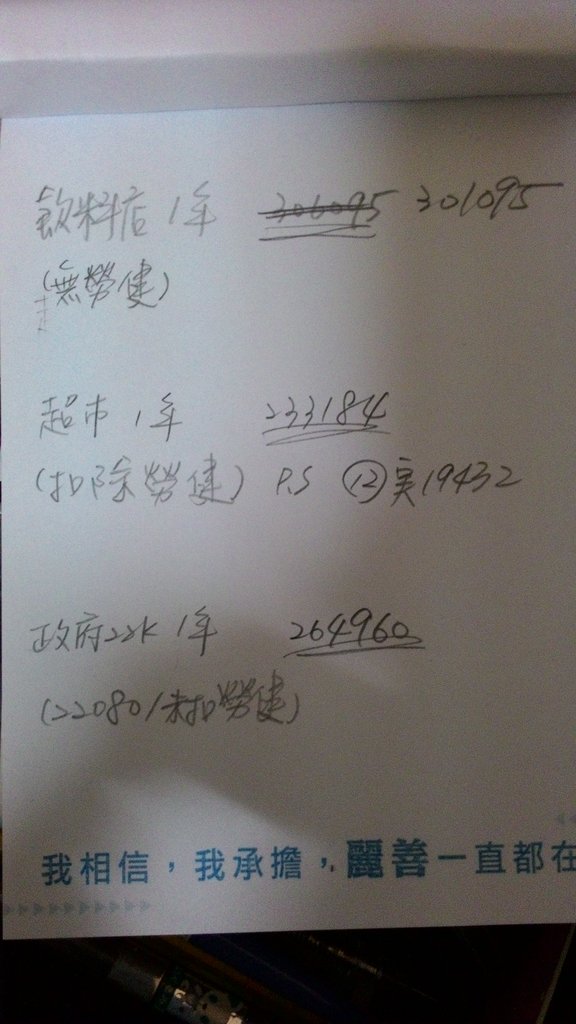 飲料店 1年 306095 301095
(無勞健)
超市 1年 233184
(扣除勞健) P.S ⑫実19432
政府22K 1年 264960
(22080/未扣勞健)
我相信，我承擔，麗善一直都在